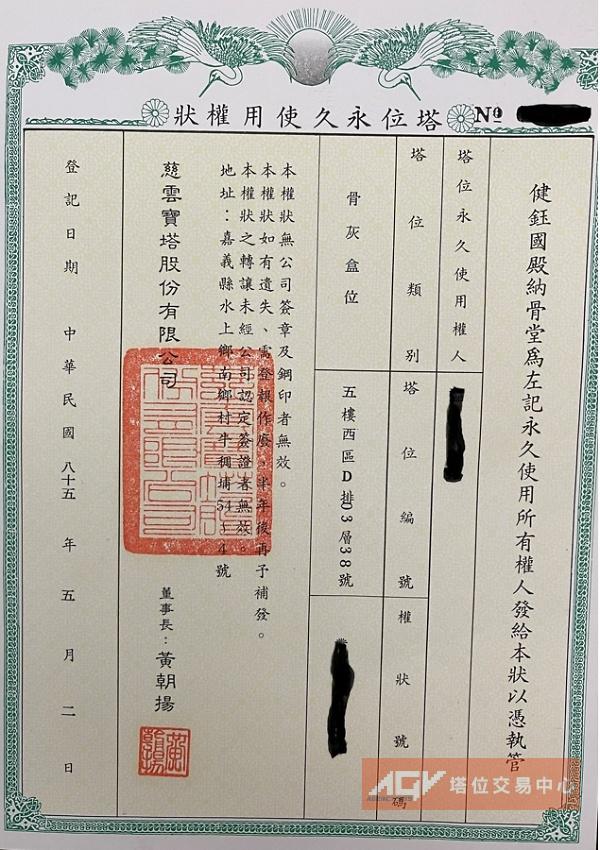 塔位永久使用權狀
№
健鈺國殿納骨堂為左記永久使用所有權人發給本狀以憑執管
塔位永久使用權人
塔位類別
塔位編號
權狀號碼
骨灰盒位
五樓西區D排03層38號
本權狀無公司簽章及鋼印者無效。
本權狀如有遺失、需登報作廢、半年後再予補發。
本權狀之轉讓未經公司認定簽證者無效。
地址：嘉義縣水上鄉南鄉村牛稠埔54-4號
慈雲寶塔股份有限公司
董事長：黃朝揚
登記日期 中華民國八十五年五月二日
AGV 塔位交易中心